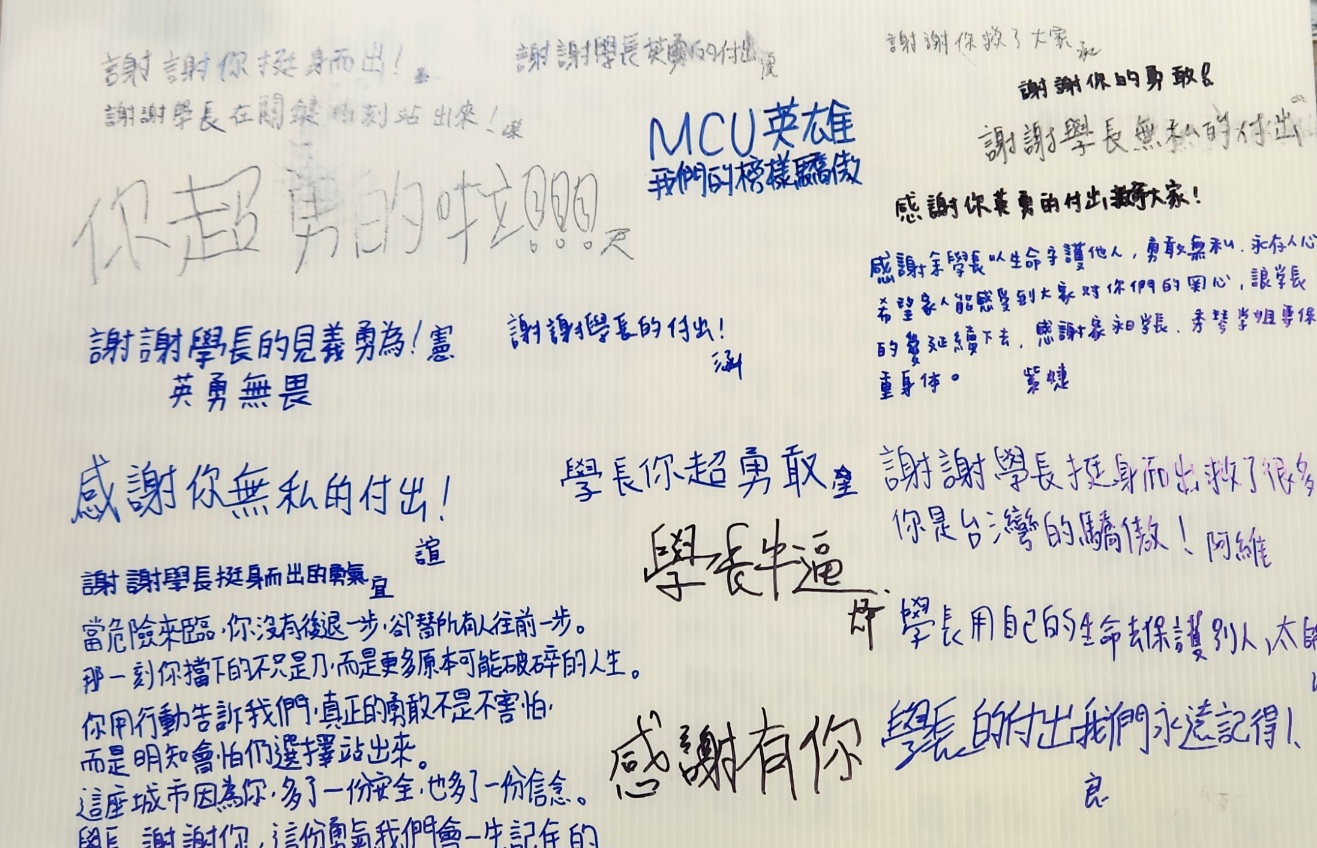 謝謝你挺身而出!
謝謝學長在關鍵時刻站出來!
你超勇的啦!!!
天
謝謝學長英勇的付出
MCU英雄
我們的榜樣驕傲
謝謝你救了大家
謝謝你的勇敢!
謝謝學長無私的付出
感謝你英勇的付出拯救大家!
感謝余學長以生命守護他人,勇敢無私.永存人心
希望家人能感受到大家对你們的関心,讓学長
的愛延續下去,感謝家和学長、秀琴学姐要保
重身体。
謝謝學長的見義勇為!憲
英勇無畏
謝謝學長的付出!
涵
感謝你無私的付出!
諠
學長你超勇敢
學長牛逼
謝謝學長挺身而出救了很多
你是台灣的驕傲!阿維
謝謝學長挺身而出的勇氣
宜
當危險來臨,你沒有後退一步,卻替所有人往前一步。
那一刻你擋下的不只是刀,而是更多原本可能破碎的人生。
你用行動告訴我們,真正的勇敢不是不害怕,
而是明知會怕仍選擇站出來。
這座城市因為你,多了一份安全,也多了一份信念。
學長,謝謝你,這份勇氣我們會一生記在的
學長用自己的生命去保護別人,太
感謝有你
學長的付出我們永遠記得!
良